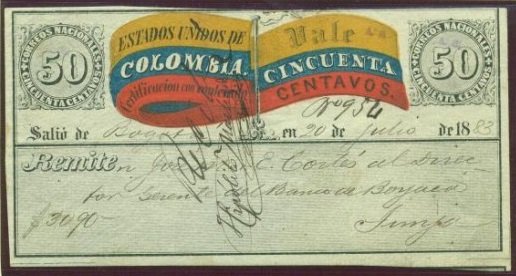 CORREOS NACIONALES
50
CINCUENTA CENTAVOS
ESTADOS UNIDOS DE
COLOMBIA.
Certificacion con
Vale
CINCUENTA
CENTAVOS.
CORREOS NACIONALES
50
CINCUENTA CENTAVOS
Nº 954
Salió de Bogotá en 20 de Julio de 1883
Remite
José E. Cortés al Direc
tor Gerente del Banco de
$3090-